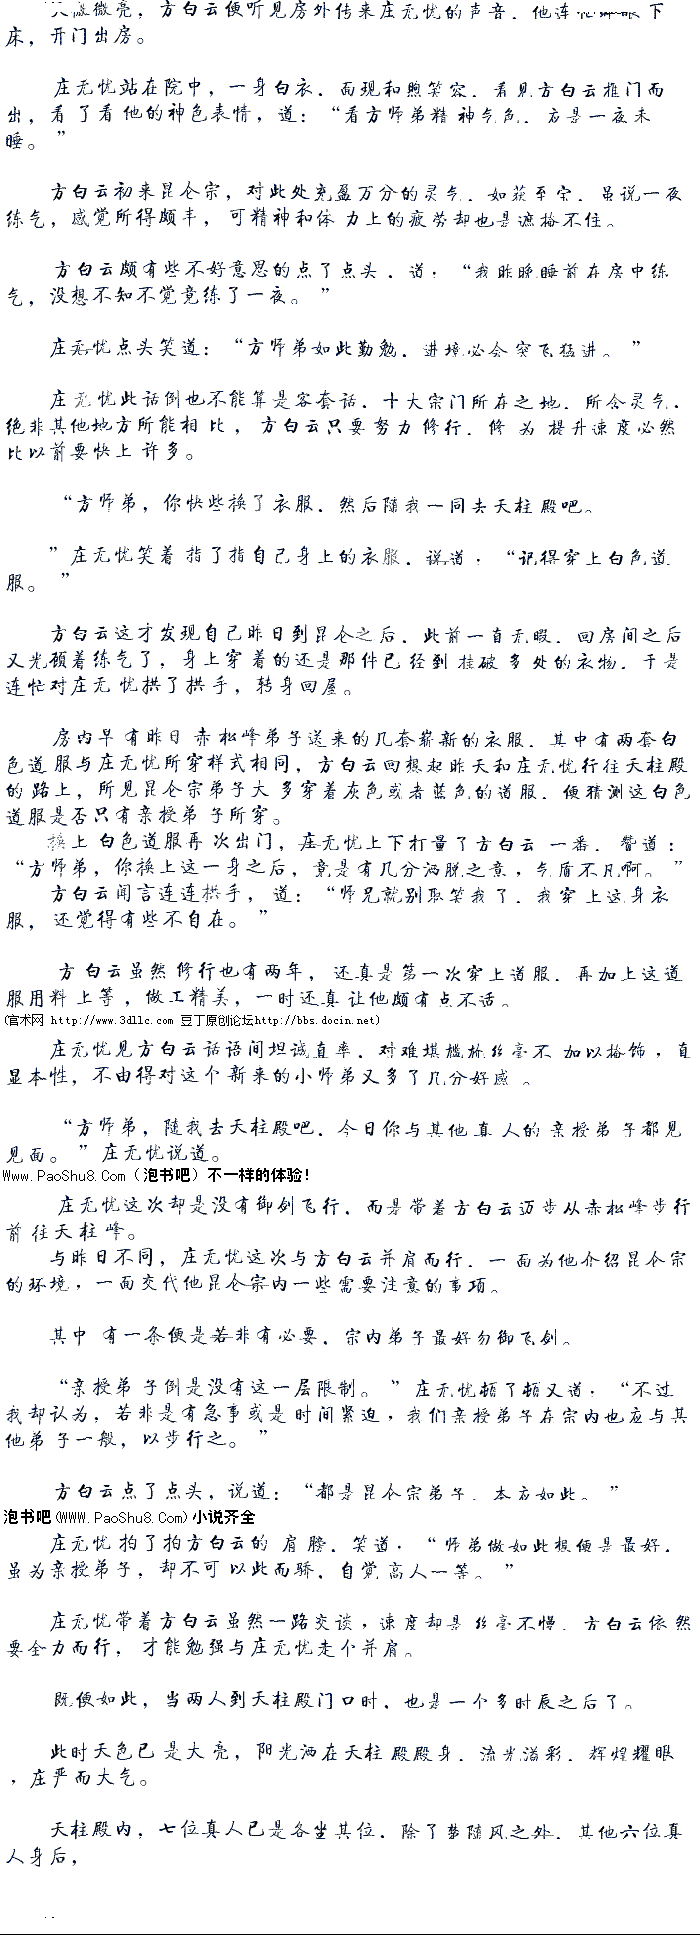 天微微亮，方白云便听见房外传来庄无忧的声音，他连忙 下
床，开门出房。
庄无忧站在院中，一身白衣，面现和煦笑容，看见方白云推门而
出，看了看他的神色表情，道：“看方师弟精神气色，应是一夜未
睡。”
方白云初来昆仑宗，对此处充盈万分的灵气，如获至宝，虽说一夜
练气，感觉所得颇丰，可精神和体力上的疲劳却也是遮掩不住。
方白云颇有些不好意思的点了点头，道：“我昨晚睡前在房中练
气，没想不知不觉竟练了一夜。”
庄无忧点头笑道：“方师弟如此勤勉，进境必会突飞猛进。”
庄无忧此话倒也不能算是客套话，十大宗门所在之地，所含灵气，
绝非其他地方所能相比，方白云只要努力修行，修为提升速度必然
比以前要快上许多。
“方师弟，你快些换了衣服，然后随我一同去天柱殿吧。
”庄无忧笑着指了指自己身上的衣服，说道：“记得穿上白色道
服。”
方白云这才发现自己昨日到昆仑之后，此前一直无暇，回房间之后
又光顾着练气了，身上穿着的还是那件已经到挂破多处的衣物，于是
连忙对庄无忧拱了拱手，转身回屋。
房内早有昨日赤松峰弟子送来的几套崭新的衣服，其中有两套白
色道服与庄无忧所穿样式相同，方白云回想起昨天和庄无忧行往天柱殿
的路上，所见昆仑宗弟子大多穿着灰色或者蓝色的道服，便猜测这白色
道服是否只有亲授弟子所穿。
换上白色道服再次出门，庄无忧上下打量了方白云一番，赞道：
“方师弟，你换上这一身之后，竟是有几分洒脱之意，气质不凡啊。”
方白云闻言连连拱手，道：“师兄就别取笑我了，我穿上这身衣
服，还觉得有些不自在。”
方白云虽然修行也有两年，还真是第一次穿上道服，再加上这道
服用料上等，做工精美，一时还真让他颇有点不适。
(官术网 http://www.3dllc.com 豆丁原创论坛http://bbs.docin.net)
庄无忧见方白云话语间坦诚直率，对难堪尴尬丝毫不加以掩饰，直
显本性，不由得对这个新来的小师弟又多了几分好感。
“方师弟，随我去天柱殿吧，今日你与其他真人的亲授弟子都见
见面。”庄无忧说道。
Www.PaoShu8.Com（泡书吧）不一样的体验!
庄无忧这次却是没有御剑飞行，而是带着方白云迈步从赤松峰步行
前往天柱峰。
与昨日不同，庄无忧这次与方白云并肩而行，一面为他介绍昆仑宗
的环境，一面交代他昆仑宗内一些需要注意的事项。
其中有一条便是若非有必要，宗内弟子最好勿御飞剑。
“亲授弟子倒是没有这一层限制。”庄无忧顿了顿又道：“不过
我却认为，若非是有急事或是时间紧迫，我们亲授弟子在宗内也应与其
他弟子一般，以步行之。”
方白云点了点头，说道：“都是昆仑宗弟子，本应如此。”
泡书吧(WWW.PaoShu8.Com)小说齐全
庄无忧拍了拍方白云的肩膀，笑道：“师弟做如此想便是最好，
虽为亲授弟子，却不可以此而骄，自觉高人一等。”
庄无忧带着方白云虽然一路交谈，速度却是丝毫不慢，方白云依然
要全力而行，才能勉强与庄无忧走个并肩。
既便如此，当两人到天柱殿门口时，也是一个多时辰之后了。
此时天色已是大亮，阳光洒在天柱殿殿身，流光溢彩，辉煌耀眼
，庄严而大气。
天柱殿内，七位真人已是各坐其位，除了梦随风之外，其他六位真
人身后，